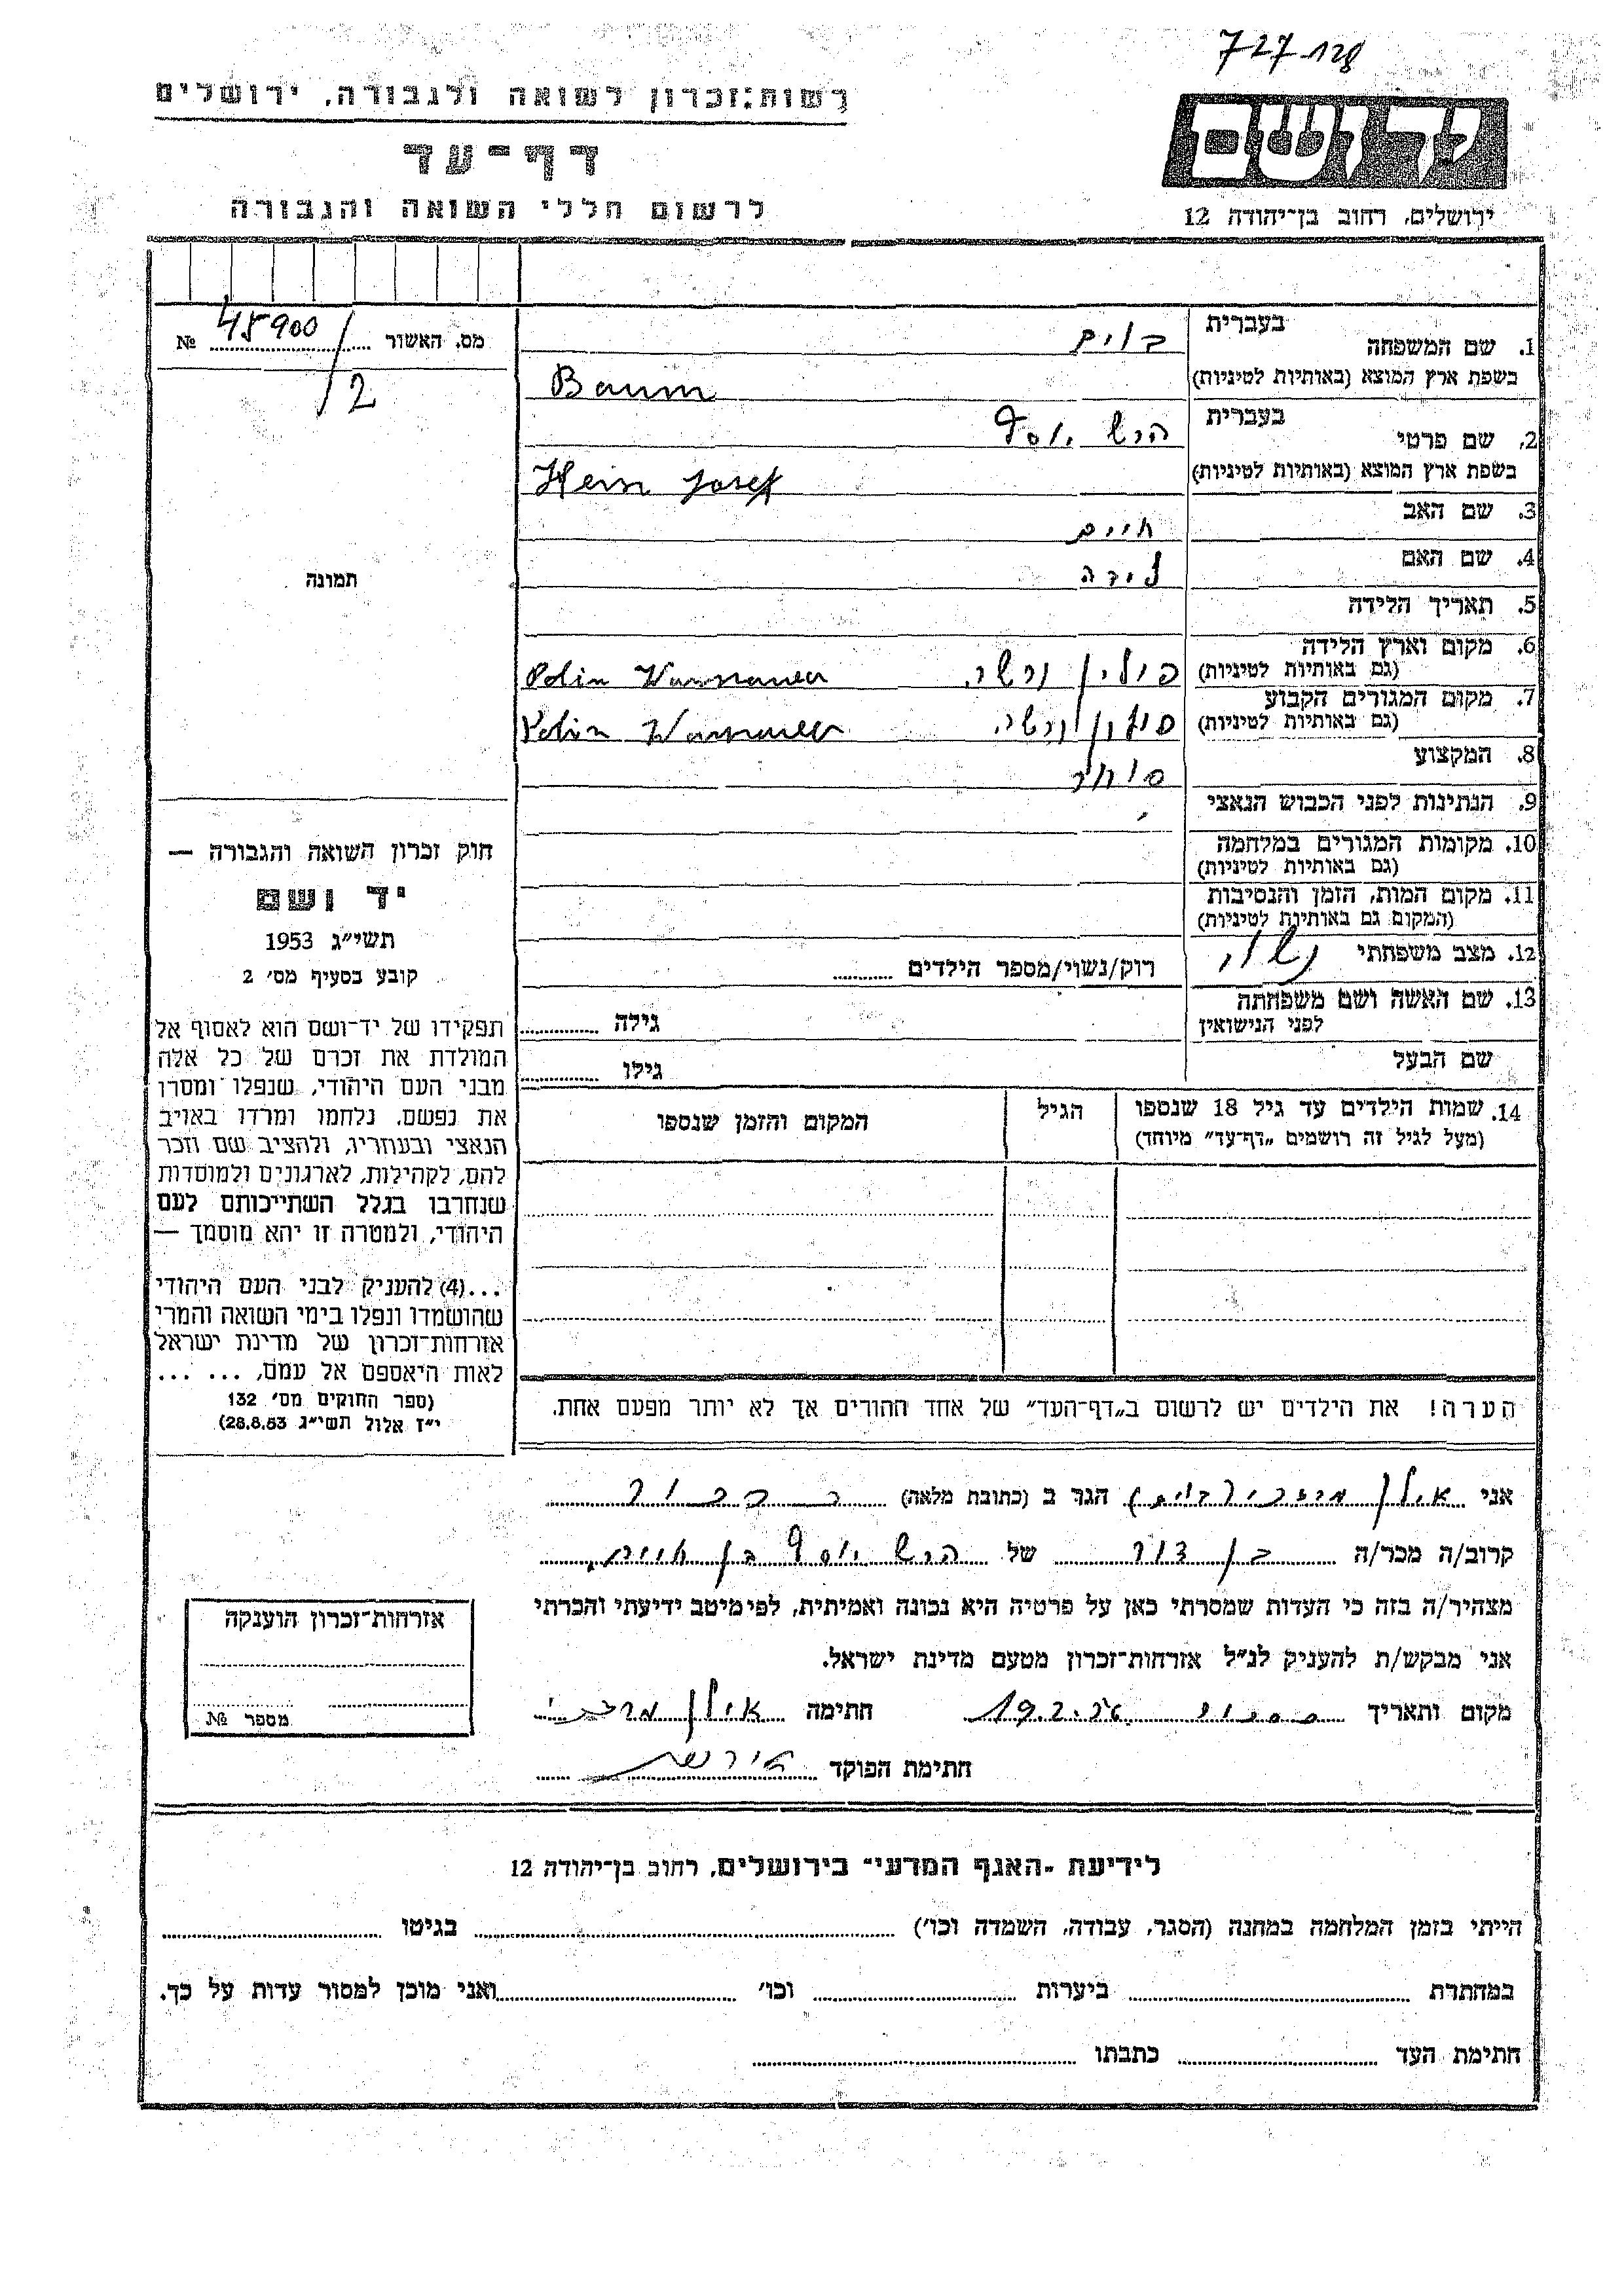 727-128
רשות זכרון לשואה ולגבורה, ירושלים
דף-עד
לרשום חללי השואה והגבורה
יד ושם
ירושלים, רחוב בן-יהודה 12
מס. האשור № 45900/2
תמונה
חוק זכרון השואה והגבורה —
יד ושם
תשי״ג 1953
קובע בסעיף מס׳ 2
תפקידו של יד-ושם הוא לאסוף אל
המולדת את זכרם של כל אלה
מבני העם היהודי, שנפלו ומסרו
את נפשם, נלחמו ומרדו באויב
הנאצי ובעוזריו, ולהציב שם וזכר
להם, לקהילות, לארגונים ולמוסדות
שנחרבו בגלל השתייכותם לעם
היהודי, ולמטרה זו יהא מוסמך —
...(4) להעניק לבני העם היהודי
שהושמדו ונפלו בימי השואה והמרי
אזרחות-זכרון של מדינת ישראל
לאות היאספם אל עמם, ... ...
(ספר החוקים מס׳ 132
י״ז אלול תשי״ג 28.8.53)
בעברית
1. שם המשפחה בוים
בשפת ארץ המוצא (באותיות לטיניות) Baum
בעברית
2. שם פרטי הרש יוסף
בשפת ארץ המוצא (באותיות לטיניות) Josef
3. שם האב חיים
4. שם האם
5. תאריך הלידה
6. מקום וארץ הלידה
(גם באותיות לטיניות) פולין ורשה Polin
7. מקום המגורים הקבוע
(גם באותיות לטיניות) פולין ורשה Polin
8. המקצוע סוחר
9. הנתינות לפני הכבוש הנאצי
10. מקומות המגורים במלחמה
(גם באותיות לטיניות)
11. מקום המות, הזמן והנסיבות
(המקום גם באותיות לטיניות)
12. מצב משפחתי נשוי רוק/נשוי/מספר הילדים
13. שם האשה ושם משפחתה
לפני הנישואין גילה
שם הבעל גילו
14. שמות הילדים עד גיל 18 שנספו הגיל המקום והזמן שנספו
(מעל לגיל זה רושמים „דף-עד״ מיוחד)
הערה! את הילדים יש לרשום ב„דף-העד״ של אחד ההורים אך לא יותר מפעם אחת.
אני אילן הגר ב (כתובת מלאה)
קרוב/ה מכר/ה בן דוד של הרש יוסף בן חיים
מצהיר/ה בזה כי העדות שמסרתי כאן על פרטיה היא נכונה ואמיתית, לפי מיטב ידיעתי והכרתי
אני מבקש/ת להעניק לנ״ל אזרחות-זכרון מטעם מדינת ישראל.
מקום ותאריך 19.2. חתימה אילן
חתימת הפוקד
אזרחות-זכרון הוענקה
מספר №
לידיעת -האגף המדעי- בירושלים, רחוב בן-יהודה 12
הייתי בזמן המלחמה במחנה (הסגר, עבודה, השמדה וכו׳) בגיטו
במחתרת ביערות וכו׳ ואני מוכן למסור עדות על כך.
חתימת העד כתבתו